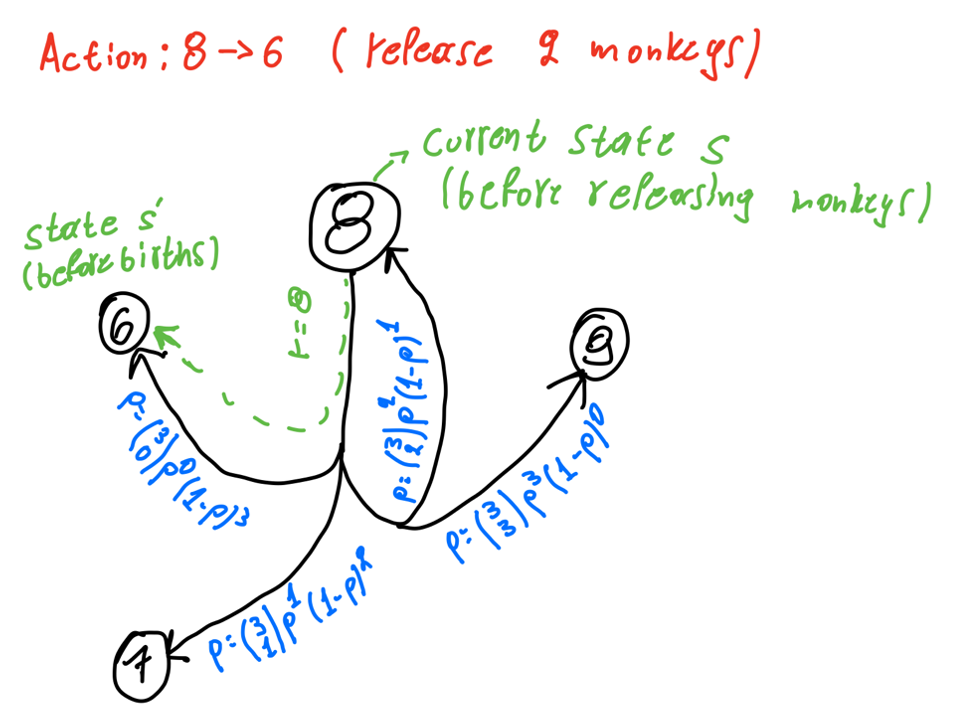 Action: 8→6 (release 2 monkeys)
current state s
(before releasing monkeys)
state s'
(before births)
8
6
r=8
9
7
p=(3 0)p^0(1-p)^3
p=(3 2)p^2(1-p)^1
p=(3 3)p^3(1-p)^0
p=(3 1)p^1(1-p)^2